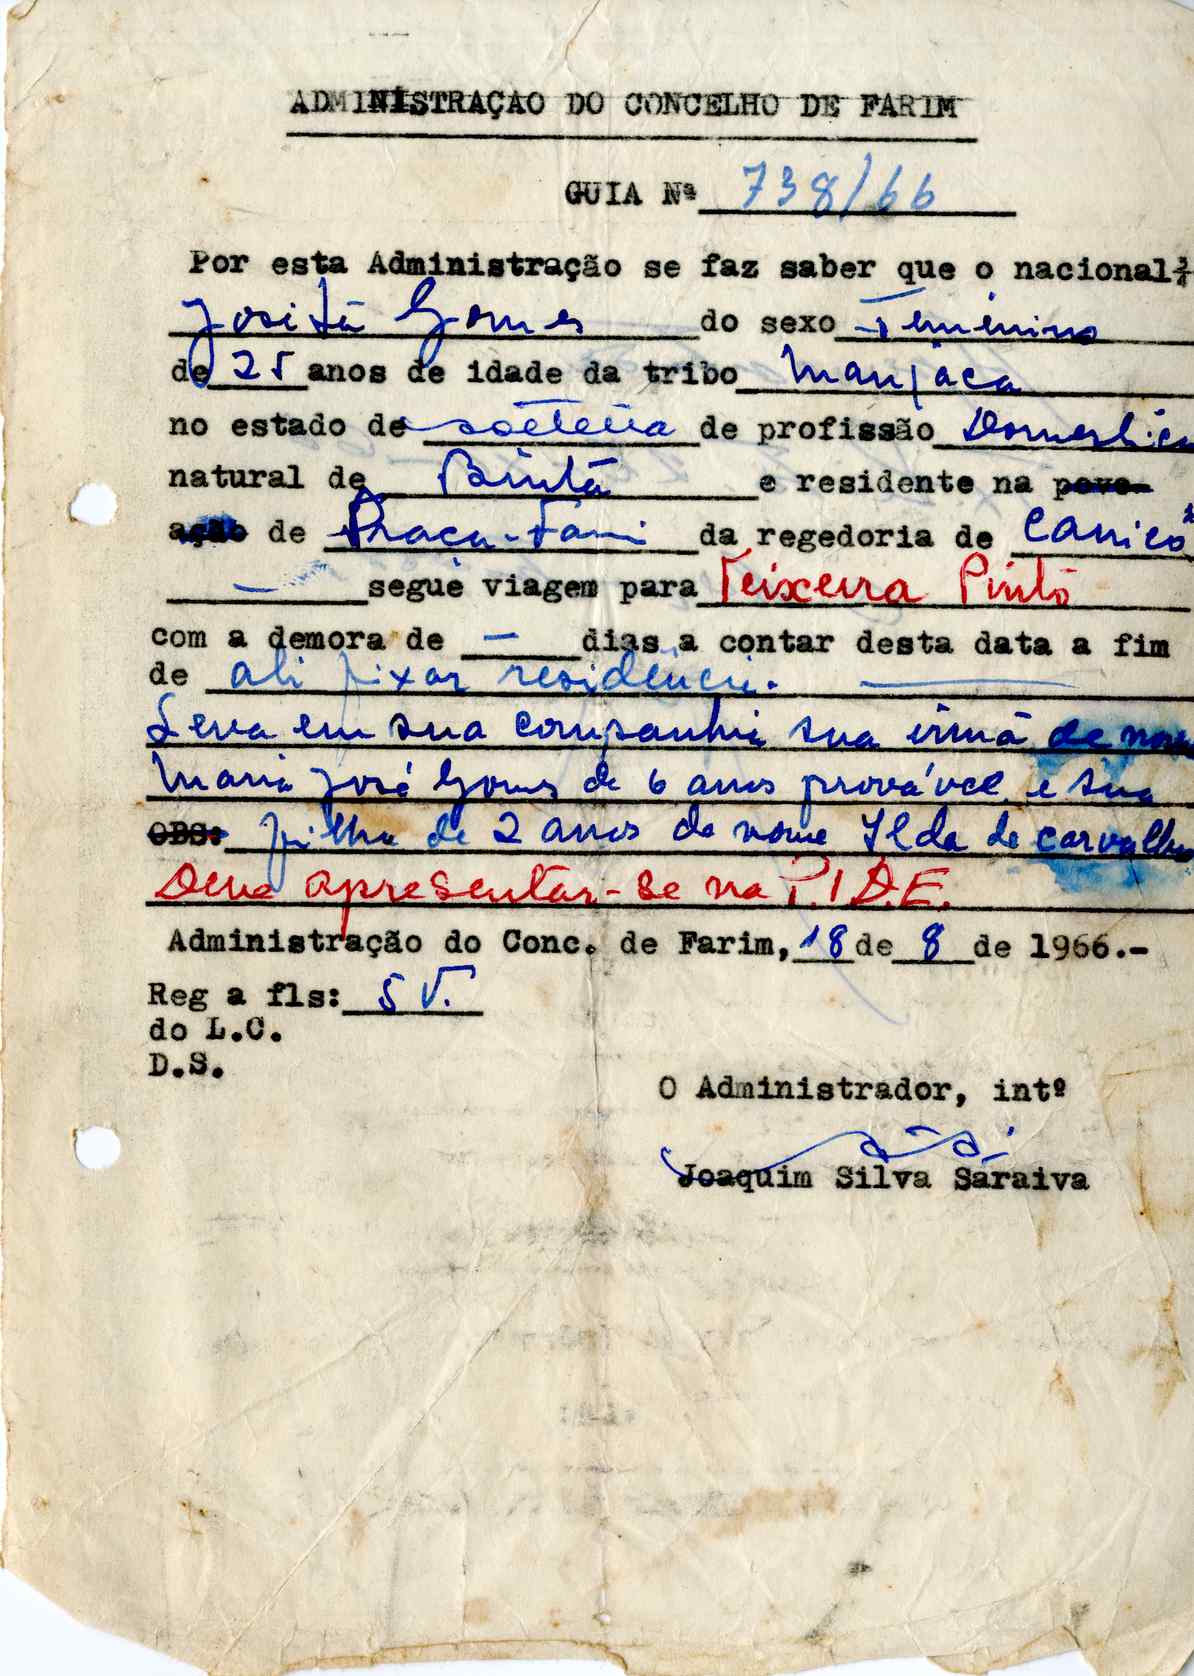 ADMINISTRAÇAO DO CONCELHO DE FARIM
GUIA Nª 738/66
Por esta Administração se faz saber que o nacional
Josefa Gomes do sexo Feminino
de 25 anos de idade da tribo Manjaca
no estado de solteira de profissão Domestica
natural de Bintã e residente na povo-
ação de da regedoria de Canico
segue viagem para Teixeira Pinto
com a demora de — dias a contar desta data a fim
de ali fixar residência.
Leva em sua companhia sua irmã de nome
Maria José Gomes de 6 anos provável e sua
OBS: filha de 2 anos de nome Ilda de Carvalho
Deve apresentar-se na P.I.D.E.
Administração do Conc. de Farim, 18 de 8 de 1966.-
Reg a fls: 5 V.
do L.C.
D.S.
O Administrador, intº
Joaquim Silva Saraiva